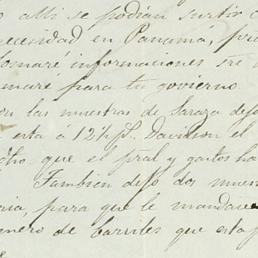 alli se podian surtir
necesidad en Panama, pre
tomaré informaciones
maré para tu gobierno
las muestras de Saraza
esta a 12½ pl. Davidson el
que el pral y gastos ha
Tambien dejo dos mues
para que le mandase
nero de barriles que esta